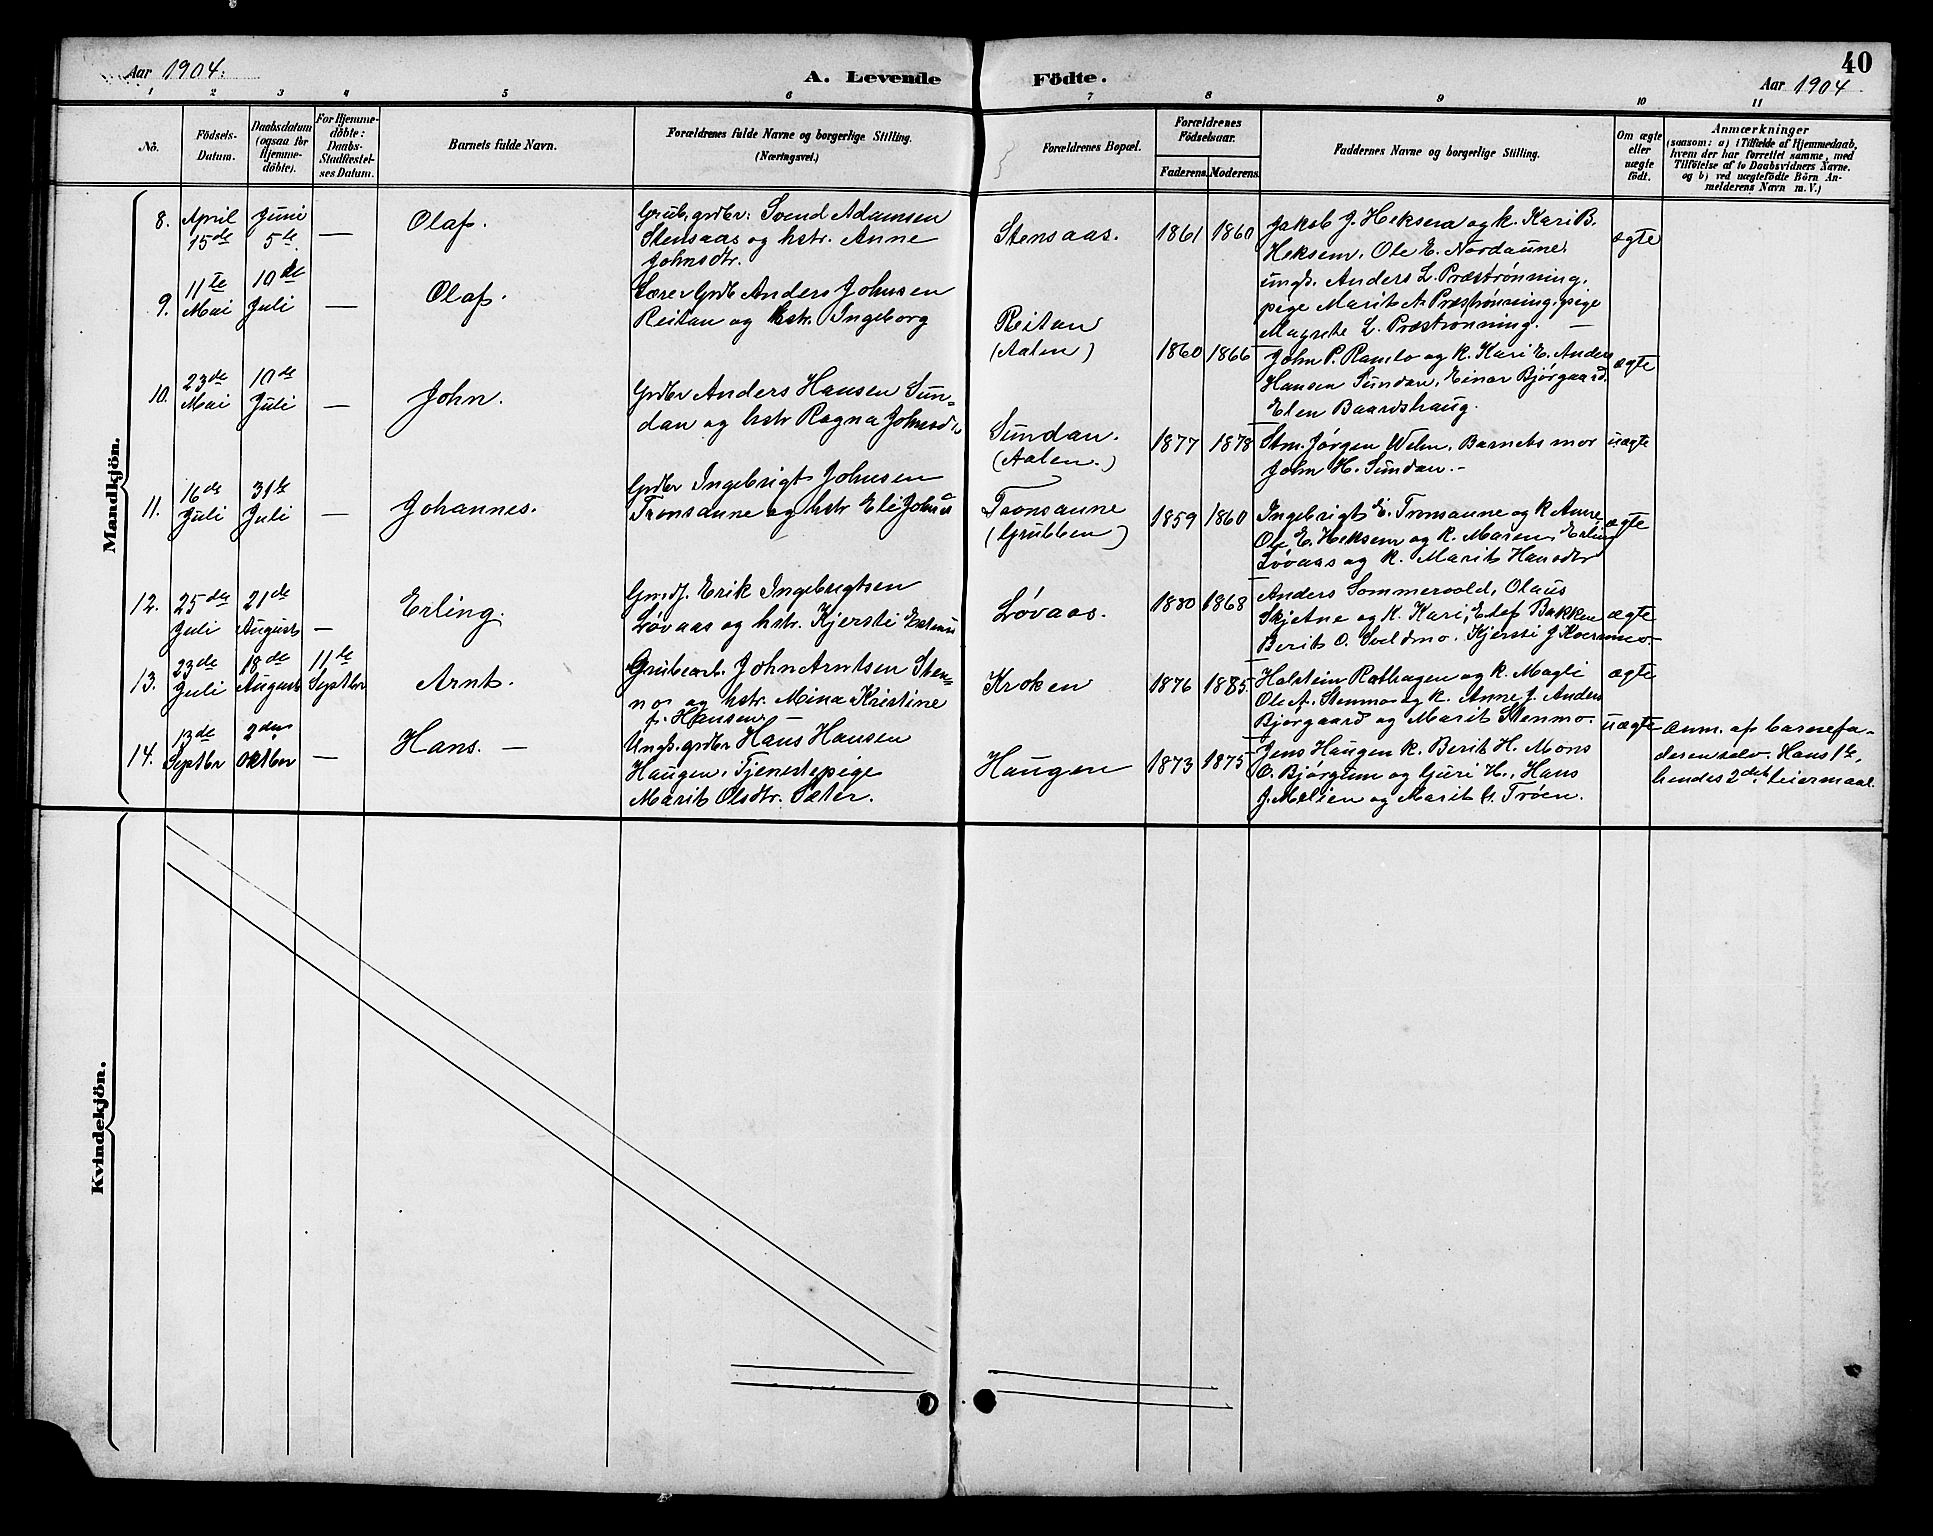 40
Aar 1904.
A. Levende Födte.
Aar 1904.
1 2 3 4 5 6 7 8 9 10 11
No.
Födsels-
Datum.
Daabsdatum
(ogsaa for
Hjemme-
döbte).
For Hjemme-
döbte:
Daabs-
Stadfæstel-
ses Datum.
Barnets fulde Navn.
Forældrenes fulde Navne og borgerlige Stilling.
(Næringsvei.)
Forældrenes Bopæl.
Forældrenes
Födselsaar.
Faderens. Moderens.
Faddernes Navne og borgerlige Stilling.
Om ægte
eller
uægte
födt.
Anmærkninger
(saasom: a) i Tilfælde af Hjemmedaab,
hvem der har forrettet samme, med
Tilföielse af to Daabsvidners Navne.
og b) ved uægtefödte Börn An-
melderens Navn m. V.)
Mandkjön.
8. April
15de
Juni
5te
—
Olaf.
Grub. grdbr: Svend Adamsen
Stensaas og hstr. Anne
Johnsdtr.
Stensaas.
1861 1860
Jakob J. Heksem og k. Kari B.
Heksem, Ole E. Nordaune,
ungk. Anders L. Præstrønning,
pige Marit A. Præstrønning, pige
Magrete L. Præstrønning. —
ægte
9. 11te
Mai
10de
Juli
—
Olaf.
Lærer Grdb Anders Johnsen
Reitan og hstr. Ingeborg
Reitan
(Aalen)
1860 1866
John P. Ramlo og k. Kari E. Anders
Hansen Sundan, Einar Bjørgaard.
Elen Baardshaug.
ægte
10. 23de
Mai
10de
Juli
—
John.
Grdbr Anders Hansen Sun-
dan og hstr Ragna Johnsdtr
Sundan.
(Aalen.)
1877 1878
Stm. Jørgen Welm, Barnets mor
John H. Sundan. -
uægte
11. 16de
Juli
31te
Juli
—
Johannes.
Grdbr Ingebrigt Johnsen
Tronsaune og hstr Eli Johns
Tronsaune
(Grubben)
1859 1860
Ingebrigt E. Tronsaune og k Anne
Ole E. Heksem og k. Maren, Erling
Løvaas og k. Marit Hansdtr
ægte
12. 25de
Juli
21de
August
—
Erling.
Erik Ingebrigtsen
Løvaas og hstr. Kjersti
Løvaas.
1880 1868
Anders Sommervold, Olaus
Skjetne og k. Kari, Bakken
Berit O. Kjersti J Kvernmo
ægte
13. 23de
Juli
18de
August
11te
Septbr
Arnt.
Grubearb. John Arntsen Sten-
no og hstr. Mina Kristine
f. Hansen. —
Kroken
1876 1885
Halstein Rathagen og k. Magli
Ole Stenmo og k. Anne J. Anders
Bjørgaard og Marit Stenmo.
ægte
14. 13de
Septbr
2den
Oktbr
—
Hans. —
Ungk. grdbr Hans Hansen
Haugen, Tjenestepige
Marit Olsdtr. Sæter.
Haugen
1873 1875
Jens Haugen k. Berit H. Mons
O. Bjørgum og Guri H., Hans
J. Mælien og Marit H. Trøen.
uægte
Anm. af barnefa-
deren selv. Hans 1te,
hendes 2det leiermaal.
Kvindekjön.